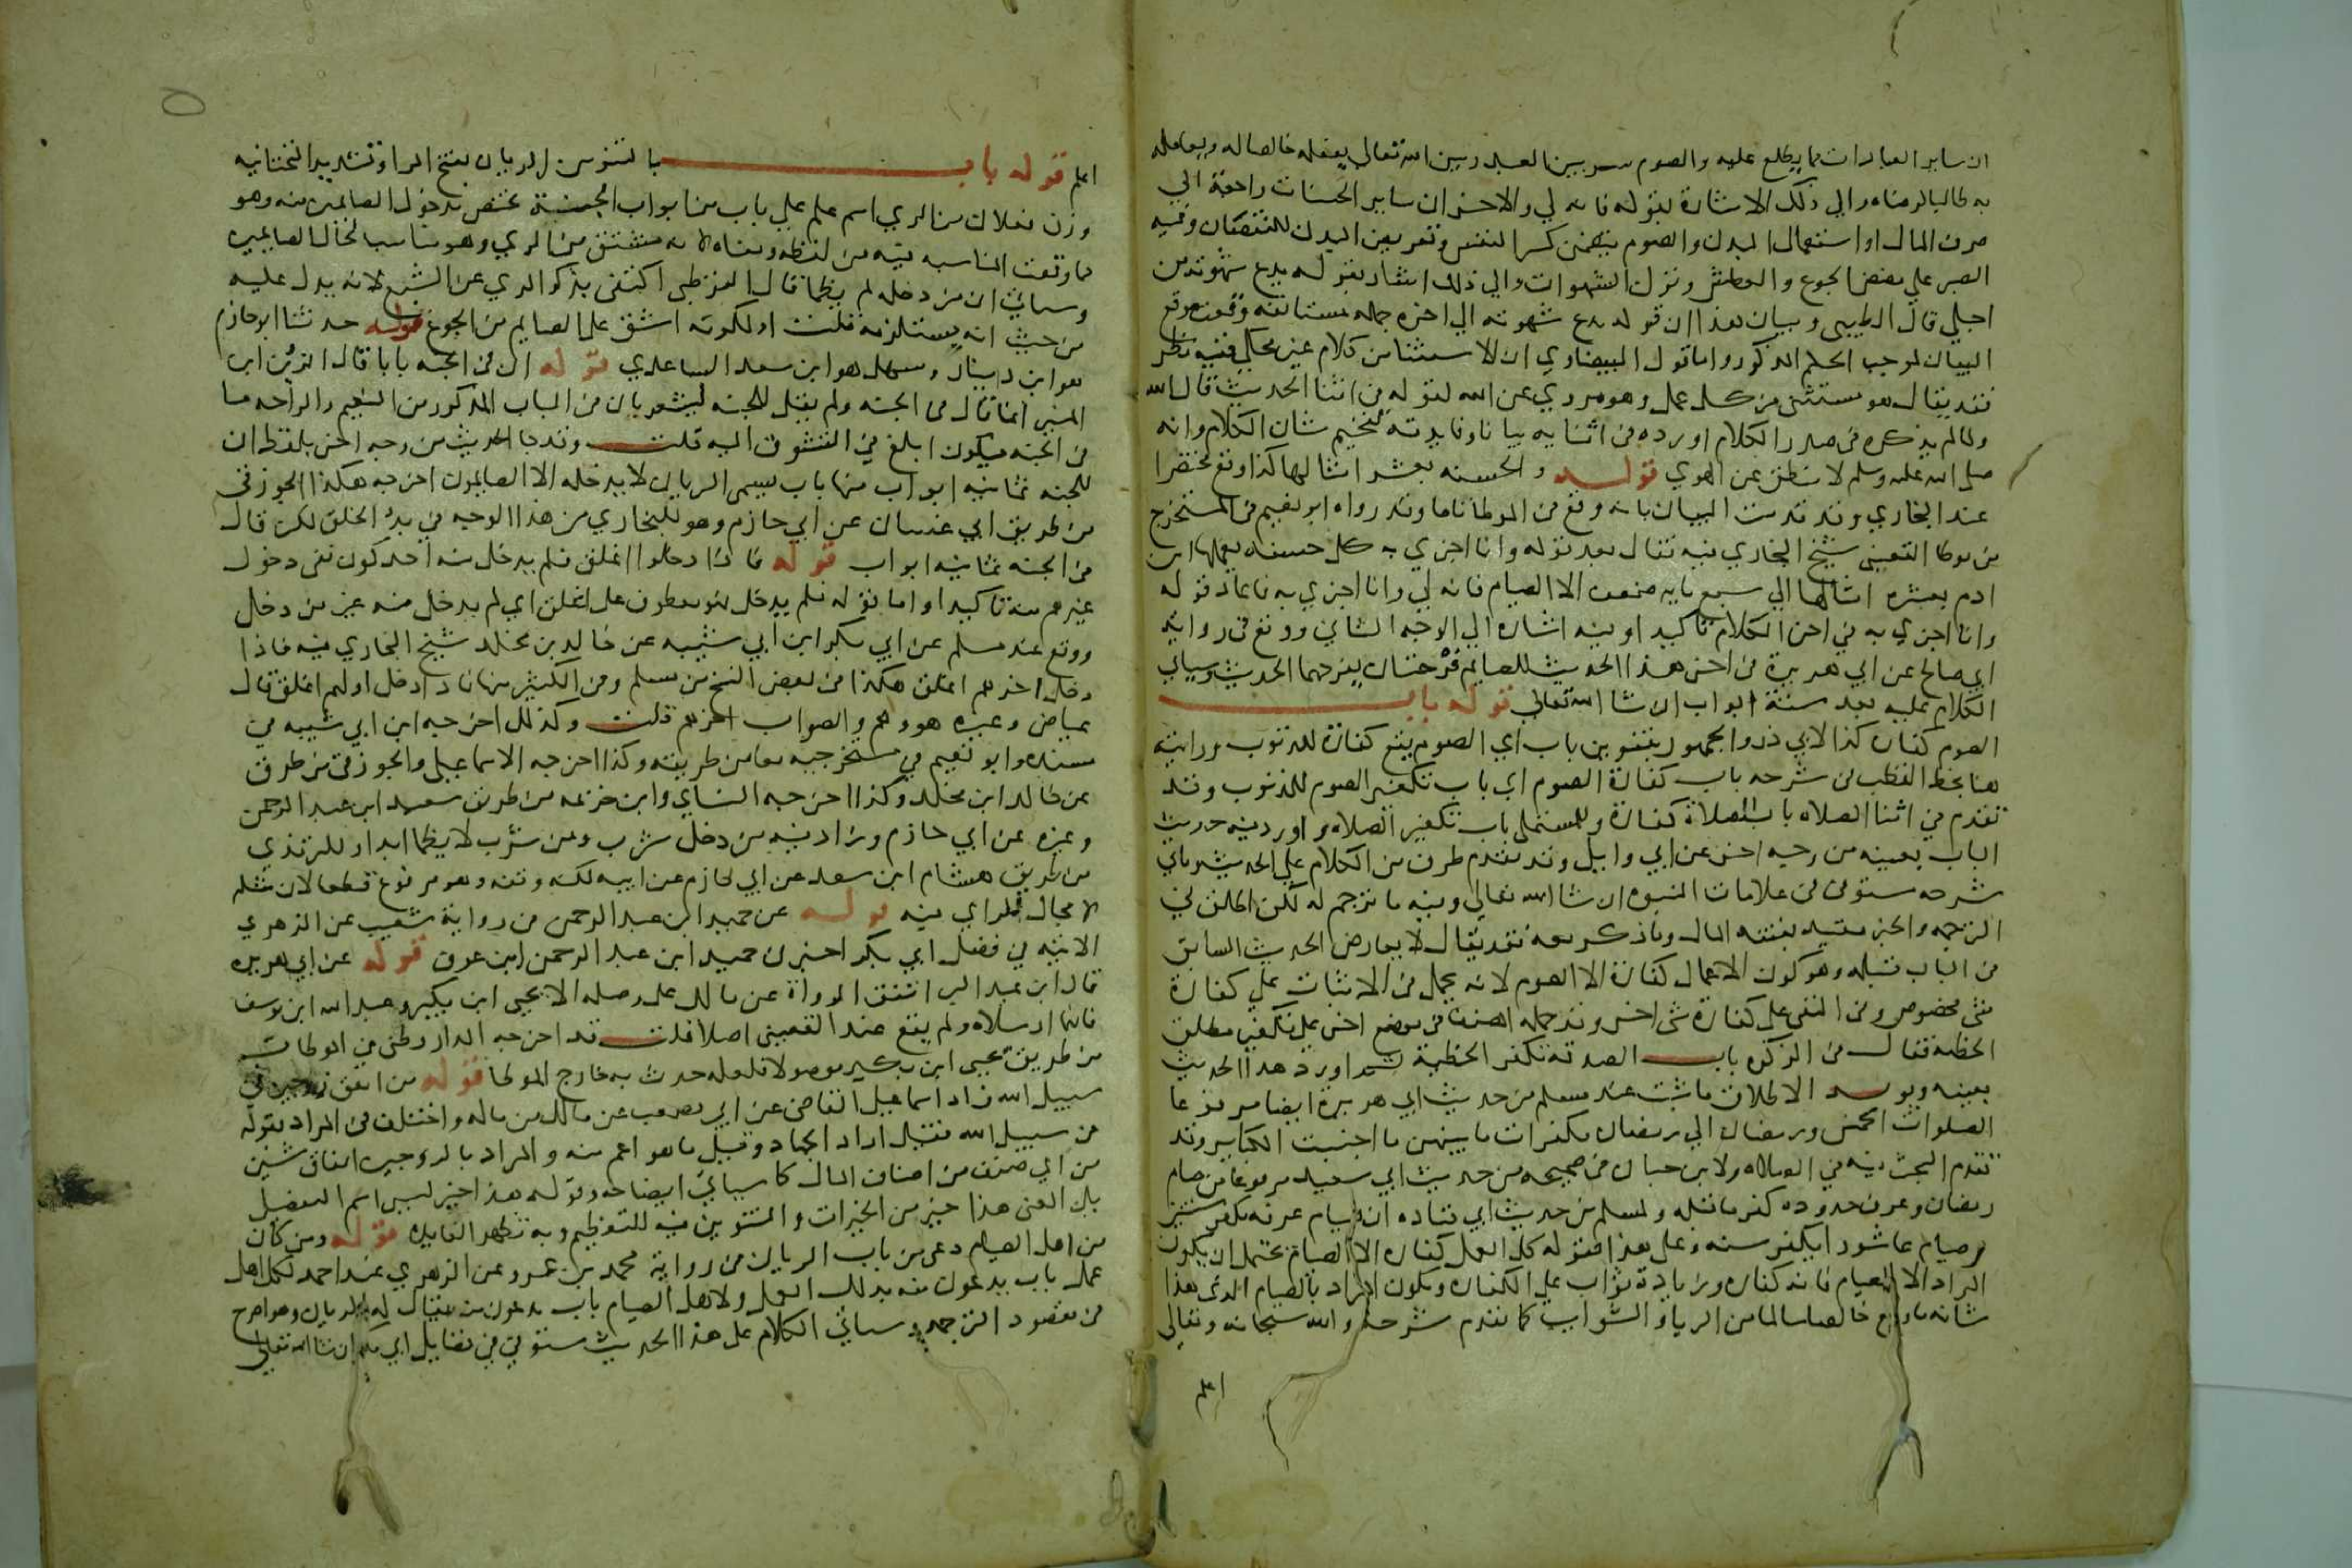 ان ساير العبادات مما يطلع عليه والصوم سر بين العبد وبين الله تعالى يفعله خالصا له ويعامله
به طالبا لرضاه والي ذلك الاشارة بقوله فانه لي والاخر ان ساير الحسنات راجعة الي
صرف المال او استعمال البدن والصوم يتضمن كسر النفس وتعريض البدن للنقصان وفيه
الصبر علي مضض الجوع والعطش وترك الشهوات والي ذلك اشار بقوله يدع شهوته من
اجلي قال الطيبي وبيان هذا ان قوله يدع شهوته الي اخره جمله مستانفه وقعت موقع
البيان لموجب الحكم المذكور واما قول البيضاوي ان الاستثنا من كلام غير محكي ففيه نظر
فقد يقال هو مستثنى من كل عمل وهو مروي عن الله لقوله في اثنا الحديث قال الله
ولما لم يذكره في صدر الكلام اورده في اثنايه بيانا وفايدته تفخيم شان الكلام وانه
صلى الله عليه وسلم لا ينطق عن الهوي قوله والحسنه بعشر امثالها كذا وقع مختصرا
عند البخاري وقد قدمت البيان بانه وقع في الموطا تاما وقد رواه ابو نعيم في المستخرج
من موطا القعنبي شيخ البخاري فيه فقال بعد قوله وانا اجزي به كل حسنه يعملها ابن
ادم بعشره امثالها الي سبع مايه ضعف الا الصيام فانه لي وانا اجزي به فاعاد قوله
وانا اجزي به في اخر الكلام تاكيدا وفيه اشاره الي الوجه الثاني ووقع في رواية
ابي صالح عن ابي هريرة في اخر هذا الحديث للصايم فرحتان يفرحهما الحديث وسياتي
الكلام عليه بعد ستة ابواب ان شا الله تعالي قوله باب
الصوم كفاره كذا لابي ذر والجمهور بتنوين باب اي الصوم يقع كفارة للذنوب ورايته
هنا بخط القطب في شرحه باب كفارة الصوم اي باب تكفير الصوم للذنوب وقد
تقدم في اثنا الصلاه باب الصلاة كفارة وللمستملي باب تكفير الصلاه واورد فيه حديث
الباب بعينه من وجه اخر عن ابي وايل وقد تقدم طرف من الكلام علي الحديث وياتي
شرحه مستوفي في علامات النبوه ان شا الله تعالي وفيه ما ترجم له لكن اطلق في
الترجمه والخبر مقيد بفتنه المال وما ذكر معه فقد يقال لا يعارض الحديث السابق
في الباب قبله وهو كون الاعمال كفارة الا الصوم لانه يحمل في الاثبات علي كفارة
شي مخصوص وفي النفي علي كفارة شي اخر وقد حمله المصنف في موضع اخر علي تكفير مطلق
الخطيه فقال في الزكوه باب الصدقه تكفر الخطية ثم اورد هذا الحديث
بعينه ويويد الاطلاق ما ثبت عند مسلم من حديث ابي هريرة ايضا مرفوعا
الصلوات الخمس ورمضان الي رمضان مكفرات ما بينهن ما اجتنبت الكباير وقد
تقدم البحث فيه في الصلاه ولابن حبان في صحيحه من حديث ابي سعيد مرفوعا من صام
رمضان وعرف حدوده كفر ما قبله ولمسلم من حديث ابي قتاده ان صيام عرفه يكفر سنتين
وصيام عاشورا يكفر سنه وعلي هذا فقوله كل العمل كفاره الا الصيام يحتمل ان يكون
المراد الا الصيام فانه كفاره وزيادة ثواب علي الكفاره ويكون المراد بالصيام الذي هذا
شانه ما وقع خالصا سالما من الريا والشوايب كما تقدم شرحه والله سبحانه وتعالي
اعلم
اعلم قوله باب بالتنوين الريان بفتح الرا وتشديد التحتانيه
وزن فعلان من الري اسم علم علي باب من ابواب الجنة يختص بدخول الصايمين منه وهو
مما وقعت المناسبه فيه بين لفظه ومعناه لانه مشتق من الري وهو مناسب لحال الصايمين
وسياتي ان من دخله لم يظما قال القرطبي اكتفي بذكر الري عن الشبع لانه يدل عليه
من حيث انه يستلزمه قلت او لكونه اشق علي الصايم من الجوع قوله حدثنا ابو حازم
هو ابن دينار وسهل هو ابن سعد الساعدي قوله ان في الجنه بابا قال الزين ابن
المنير انما قال في الجنه ولم يقل للجنه ليشعر بان في الباب المذكور من النعيم والراحه ما
في الجنه فيكون ابلغ في التشوق اليه قلت وقد جا الحديث من وجه اخر بلفظ ان
للجنه ثمانيه ابواب منها باب يسمى الريان لا يدخله الا الصايمون اخرجه هكذا الجوزقي
من طريق ابي غسان عن ابي حازم وهو للبخاري من هذا الوجه في بدء الخلق لكن قال
في الجنه ثمانيه ابواب قوله فاذا دخلوا اغلق فلم يدخل منه احد كرر نفي دخول
غيرهم منه تاكيدا واما قوله فلم يدخل فهو معطوف علي اغلق اي لم يدخل منه غير من دخل
ووقع عند مسلم عن ابي بكر ابن ابي شيبه عن خالد بن مخلد شيخ البخاري فيه فاذا
دخل اخرهم اغلق هكذا في بعض النسخ من مسلم وفي الكثير منها فاذا دخل اولهم اغلق قال
عياض وغيره هو وهم والصواب اخرهم قلت وكذلك اخرجه ابن ابي شيبه في
مسنده وابو نعيم في مستخرجيه معا من طريقه وكذا اخرجه الاسماعيلي والجوزقي من طرق
عن خالد ابن مخلد وكذا اخرجه النساي وابن خزيمه من طريق سعيد ابن عبد الرحمن
وغيره عن ابي حازم وزاد فيه من دخل شرب ومن شرب لا يظما ابدا وللترمذي
من طريق هشام ابن سعد عن ابي حازم عن ابيه لكنه وقفه وهو مرفوع قطعا لان مثله
لا مجال للراي فيه قوله عن حميد ابن عبد الرحمن في رواية شعيب عن الزهري
الاتيه في فضل ابي بكر اخبرني حميد ابن عبد الرحمن ابن عوف قوله عن ابي هريره
قال ابن عبد البر اتفق الرواة عن مالك علي وصله الا يحيى ابن بكير وعبد الله ابن يوسف
فانهما ارسلاه ولم يقع عند القعنبي اصلا قلت قد اخرجه الدارقطني في الموطات
من طريق يحيى ابن بكير موصولا فلعله حدث به خارج الموطا قوله من انفق زوجين في
سبيل الله زاد اسماعيل القاضي عن ابي مصعب عن مالك من ماله واختلف في المراد بقوله
في سبيل الله فقيل اراد الجهاد وقيل ما هو اعم منه والمراد بالزوجين انفاق شيين
من اي صنف من اصناف المال كما سياتي ايضاحه وقوله هذا خير ليس اسم التفضيل
بل المعنى هذا خير من الخيرات والتنوين فيه للتعظيم وبه تظهر الفايده قوله ومن كان
من اهل الصيام دعي من باب الريان في رواية محمد بن عمرو عن الزهري عند احمد لكل اهل
عمل باب يدعون منه بذلك العمل ولاهل الصيام باب يدعون منه يقال له الريان وهو اصرح
في مقصود الترجمه وسياتي الكلام علي هذا الحديث مستوفي في فضايل ابي بكر ان شا الله تعالى